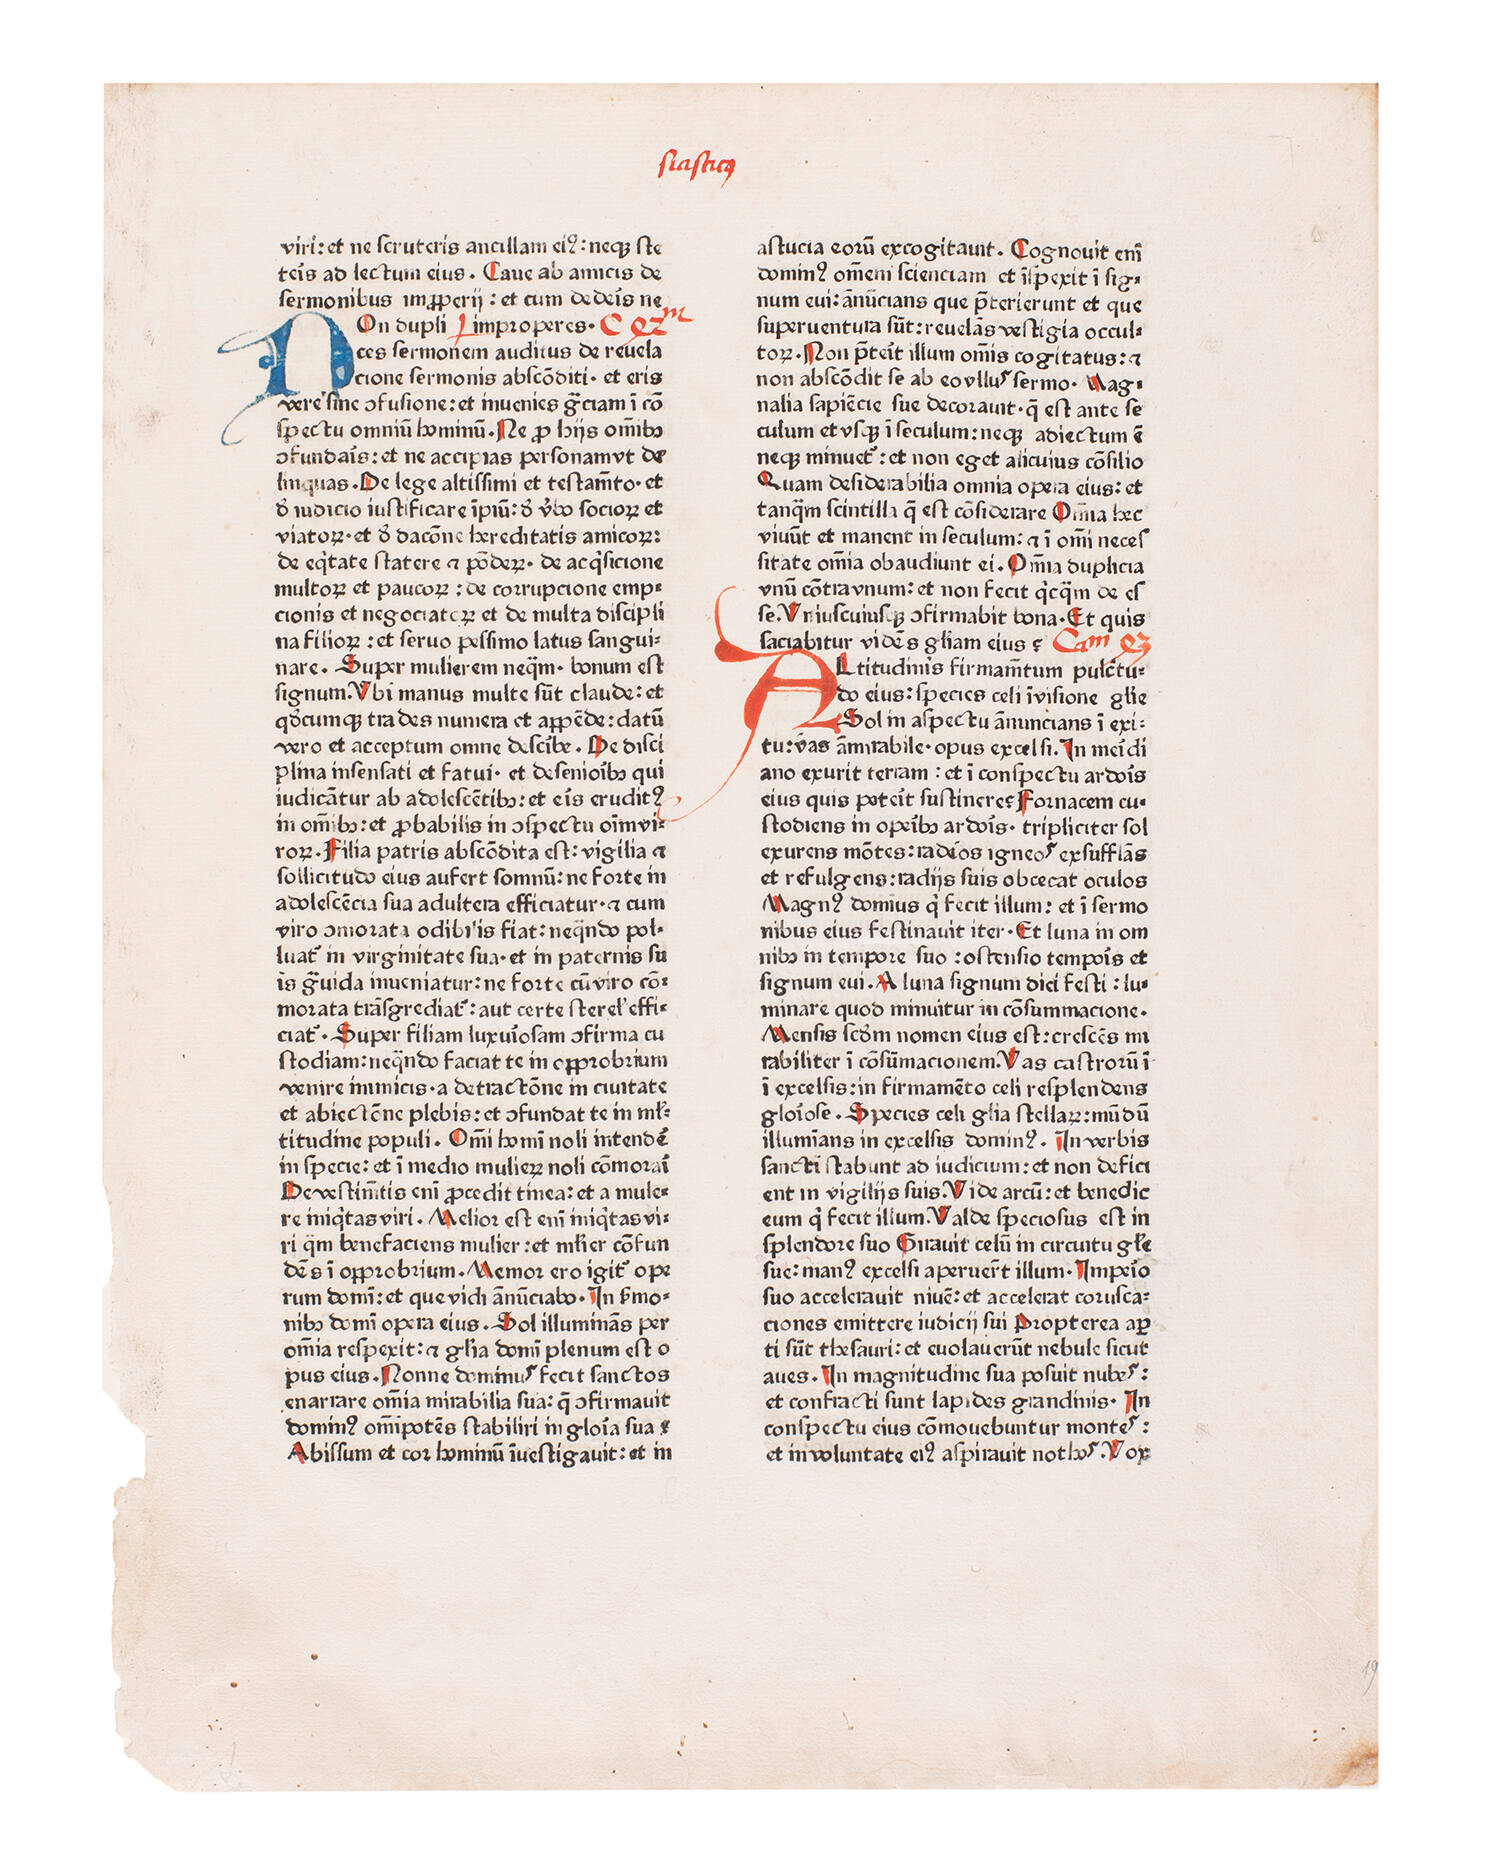 siasticꝰ
viri: et ne scruteris ancillam eiꝰ: neqꝫ ste
teis ad lectum eius. Caue ab amicis de
sermonibus imꝓperij: et cum dedeis ne
On dupli improperes. C xlij
ces sermonem auditus de reuela
cione sermonis abscōditi. et eris
vere sine ↄfusione: et inuenies grāciam ī cō
spectu omniū hominū. Ne ꝓ hijs omibꝫ
ↄfundais: et ne accipias personam vt de
linquas. De lege altissimi et testamto. et
ð iudicio iustificare īpiū: ð vbo socioꝝ et
viatoꝝ. et ð dacōne hereditatis amicoꝝ:
de eqitate statere ⁊ pōdeꝝ. de acqisicione
multoꝝ et paucoꝝ: de corrupcione emp-
cionis et negociatoꝝ et de multa discipli
na filioꝝ: et seruo pessimo latus sangui-
nare. Super mulierem neqm. bonum est
signum. Vbi manus multe sūt claude: et
qdcumqꝫ trades numera et appēde: datū
vero et acceptum omne describe. De disci
plina insensati et fatui. et de senioibꝫ qui
iudicātur ab adolescētibꝫ: et eis eruditꝰ
in omibꝫ: et ꝓbabilis in ↄspectu oim vi-
roꝝ. Filia patris abscōdita est: vigilia ⁊
sollicitudo eius aufert somnū: ne forte in
adolescēcia sua adultera efficiatur. ⁊ cum
viro ↄmorata odibilis fiat: neqndo pol-
luat᷑ in virginitate sua. et in paternis su
is grauida inueniatur: ne forte cū viro cō-
morata trāsgrediat᷑: aut certe sterel' effi-
ciat᷑. Super filiam luxuiosam ↄfirma cu
stodiam: neqndo faciat te in opprobrium
venire inimicis. a detractōne in ciuitate
et abiectōne plebis: et ↄfundat te in ml'-
titudine populi. Omi homi noli intendē
in specie: et ī medio mulieꝝ noli cōmorai
De vestimtis eni ꝓcedit tinea: et a mulie-
re iniqitas viri. Melior est eni iniqitas vi-
ri qm benefaciens mulier: et ml'ier cōfun
dēs ī opprobrium. Memor ero igit᷑ ope
rum domi: et que vidi ānūciabo. In smo-
nibꝫ domi opera eius. Sol illuminās per
omia respexit: ⁊ glia domi plenum est o
pus eius. Nonne dominus fecit sanctos
enarrare omia mirabilia sua: q ↄfirmauit
dominꝰ omipotēs stabiliri in gloia sua
Abissum et cor hominū īuestigauit: et in
astucia eorū excogitauit. Cognouit eni
dominꝰ omem scienciam et īspexit ī sig-
num eui: ānūcians que pterierunt et que
superuentura sūt: reuelās vestigia occul-
toꝝ. Non pteit illum omis cogitatus: ⁊
non abscōdit se ab eo vllus sermo. Mag-
nalia sapiēcie sue decorauit. q est ante se
culum et vsqꝫ ī seculum: neqꝫ adiectum ē
neqꝫ minuet᷑: et non eget alicuius cōsilio
Quam desiderabilia omnia opera eius: et
tanqm scintilla q est cōsiderare Omia hec
viuūt et manent in seculum: ⁊ ī omi neces
sitate omia obaudiunt ei. Omia duplicia
vnū cōtra vnum: et non fecit qcqm de es
se. Vniuscuiusqꝫ ↄfirmabit bona. Et quis
saciabitur vidēs gliam eius Cam xliij
Ltitudinis firmamtum pulctu-
do eius: species celi ī visione glie
Sol in aspectu ānuncians ī exi-
tu: vas āmirabile. opus excelsi. In meidi
ano exurit terram: et ī conspectu ardois
eius quis poteit sustinere? Fornacem cu-
stodiens in opeibꝫ ardois. tripliciter sol
exurens mōtes: radios igneos exsufflās
et refulgens: radijs suis obcecat oculos
Magnꝰ domius q fecit illum: et ī sermo
nibus eius festinauit iter. Et luna in om
nibꝫ in tempore suo: ostensio tempois et
signum eui. A luna signum diei festi: lu-
minare quod minuitur in cōsummacione.
Mensis scdm nomen eius est: crescēs mi
rabiliter ī cōsūmacionem. Vas castrorū ī
ī excelsis: in firmamēto celi resplendens
gloiose. Species celi glia stellaꝝ: mūdū
illumians in excelsis dominꝰ. In verbis
sancti stabunt ad iudicium: et non defici
ent in vigilijs suis. Vide arcū: et benedic
eum q fecit illum. Valde speciosus est in
splendore suo Girauit celū in circuitu gl'e
sue: manꝰ excelsi aperuert illum. Impeio
suo accelerauit niuē: et accelerat corusca-
ciones emittere iudicij sui Propterea ap
ti sūt thesauri: et euolauerūt nebule sicut
aues. In magnitudine sua posuit nubes:
et confracti sunt lapides grandinis. In
conspectu eius cōmouebuntur montes:
et in voluntate eiꝰ aspirauit nothꝰ. Vox
19